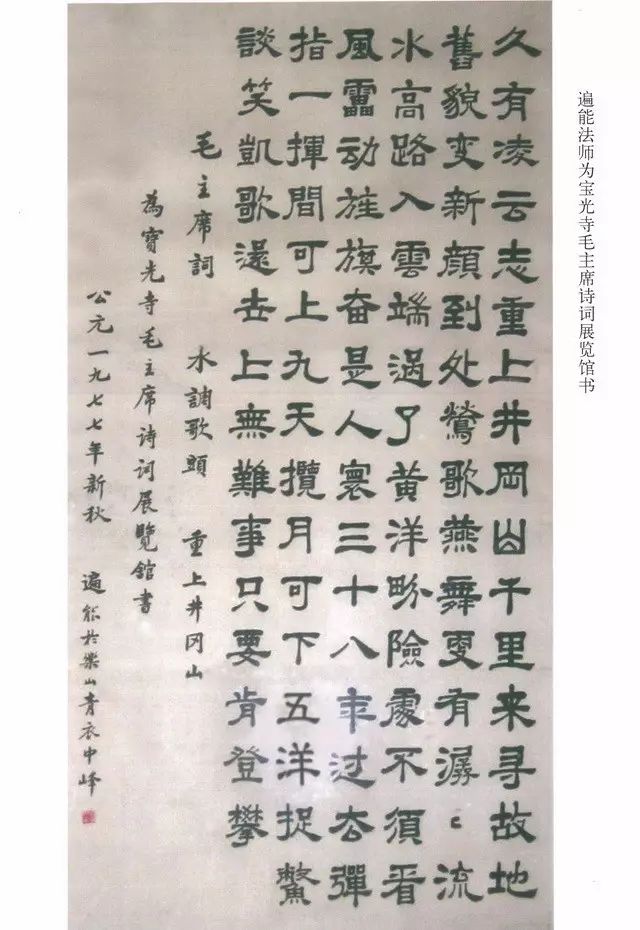 遍能法师为宝光寺毛主席诗词展览馆书
久有凌云志重上井岡山千里来寻故地
舊貌变新顔到处鶯歌燕舞更有潺〻流
水高路入雲端過了黄洋畍險處不須看
風靁动旌旗奋是人寰三十八年过去彈
指一揮間可上九天攬月可下五洋捉鱉
談笑凱歌還世上無難事只要肯登攀
毛主席詞 水調歌頭 重上井冈山
為寶光寺毛主席诗词展覽館書
公元一九七七年新秋 遍能於樂山青衣中峰